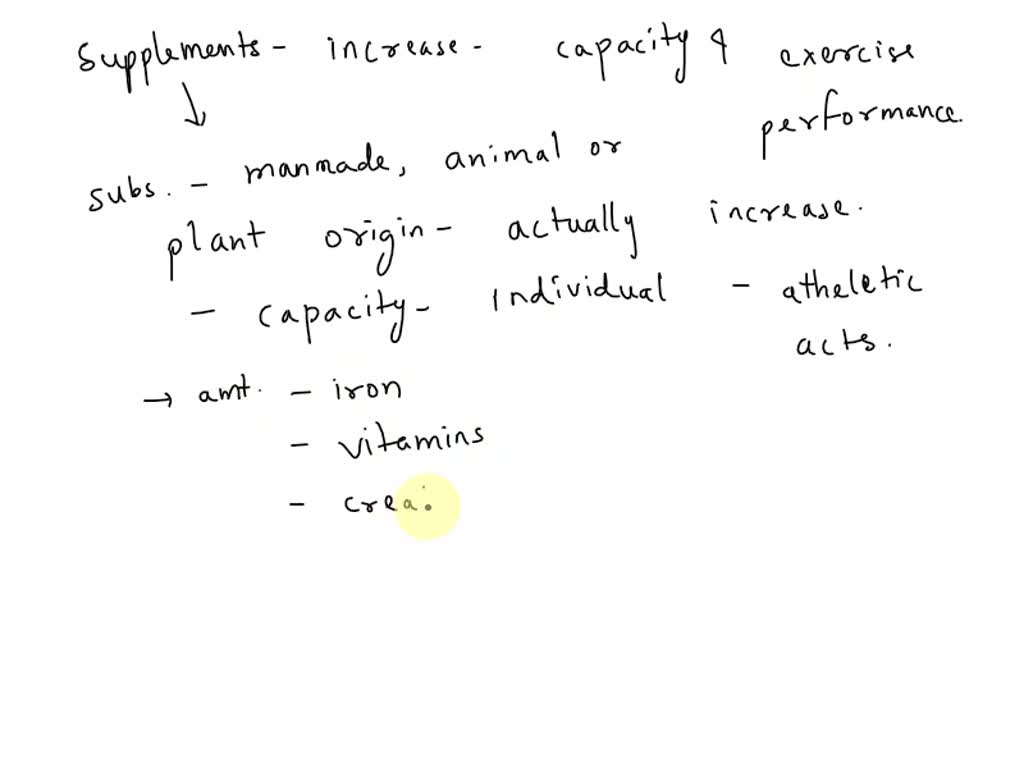 Supplements - increase - capacity & exercise
performance.
subs. - manmade, animal or
plant origin - actually increase.
- capacity - individual - atheletic
acts.
→ amt. - iron
- vitamins
- crea